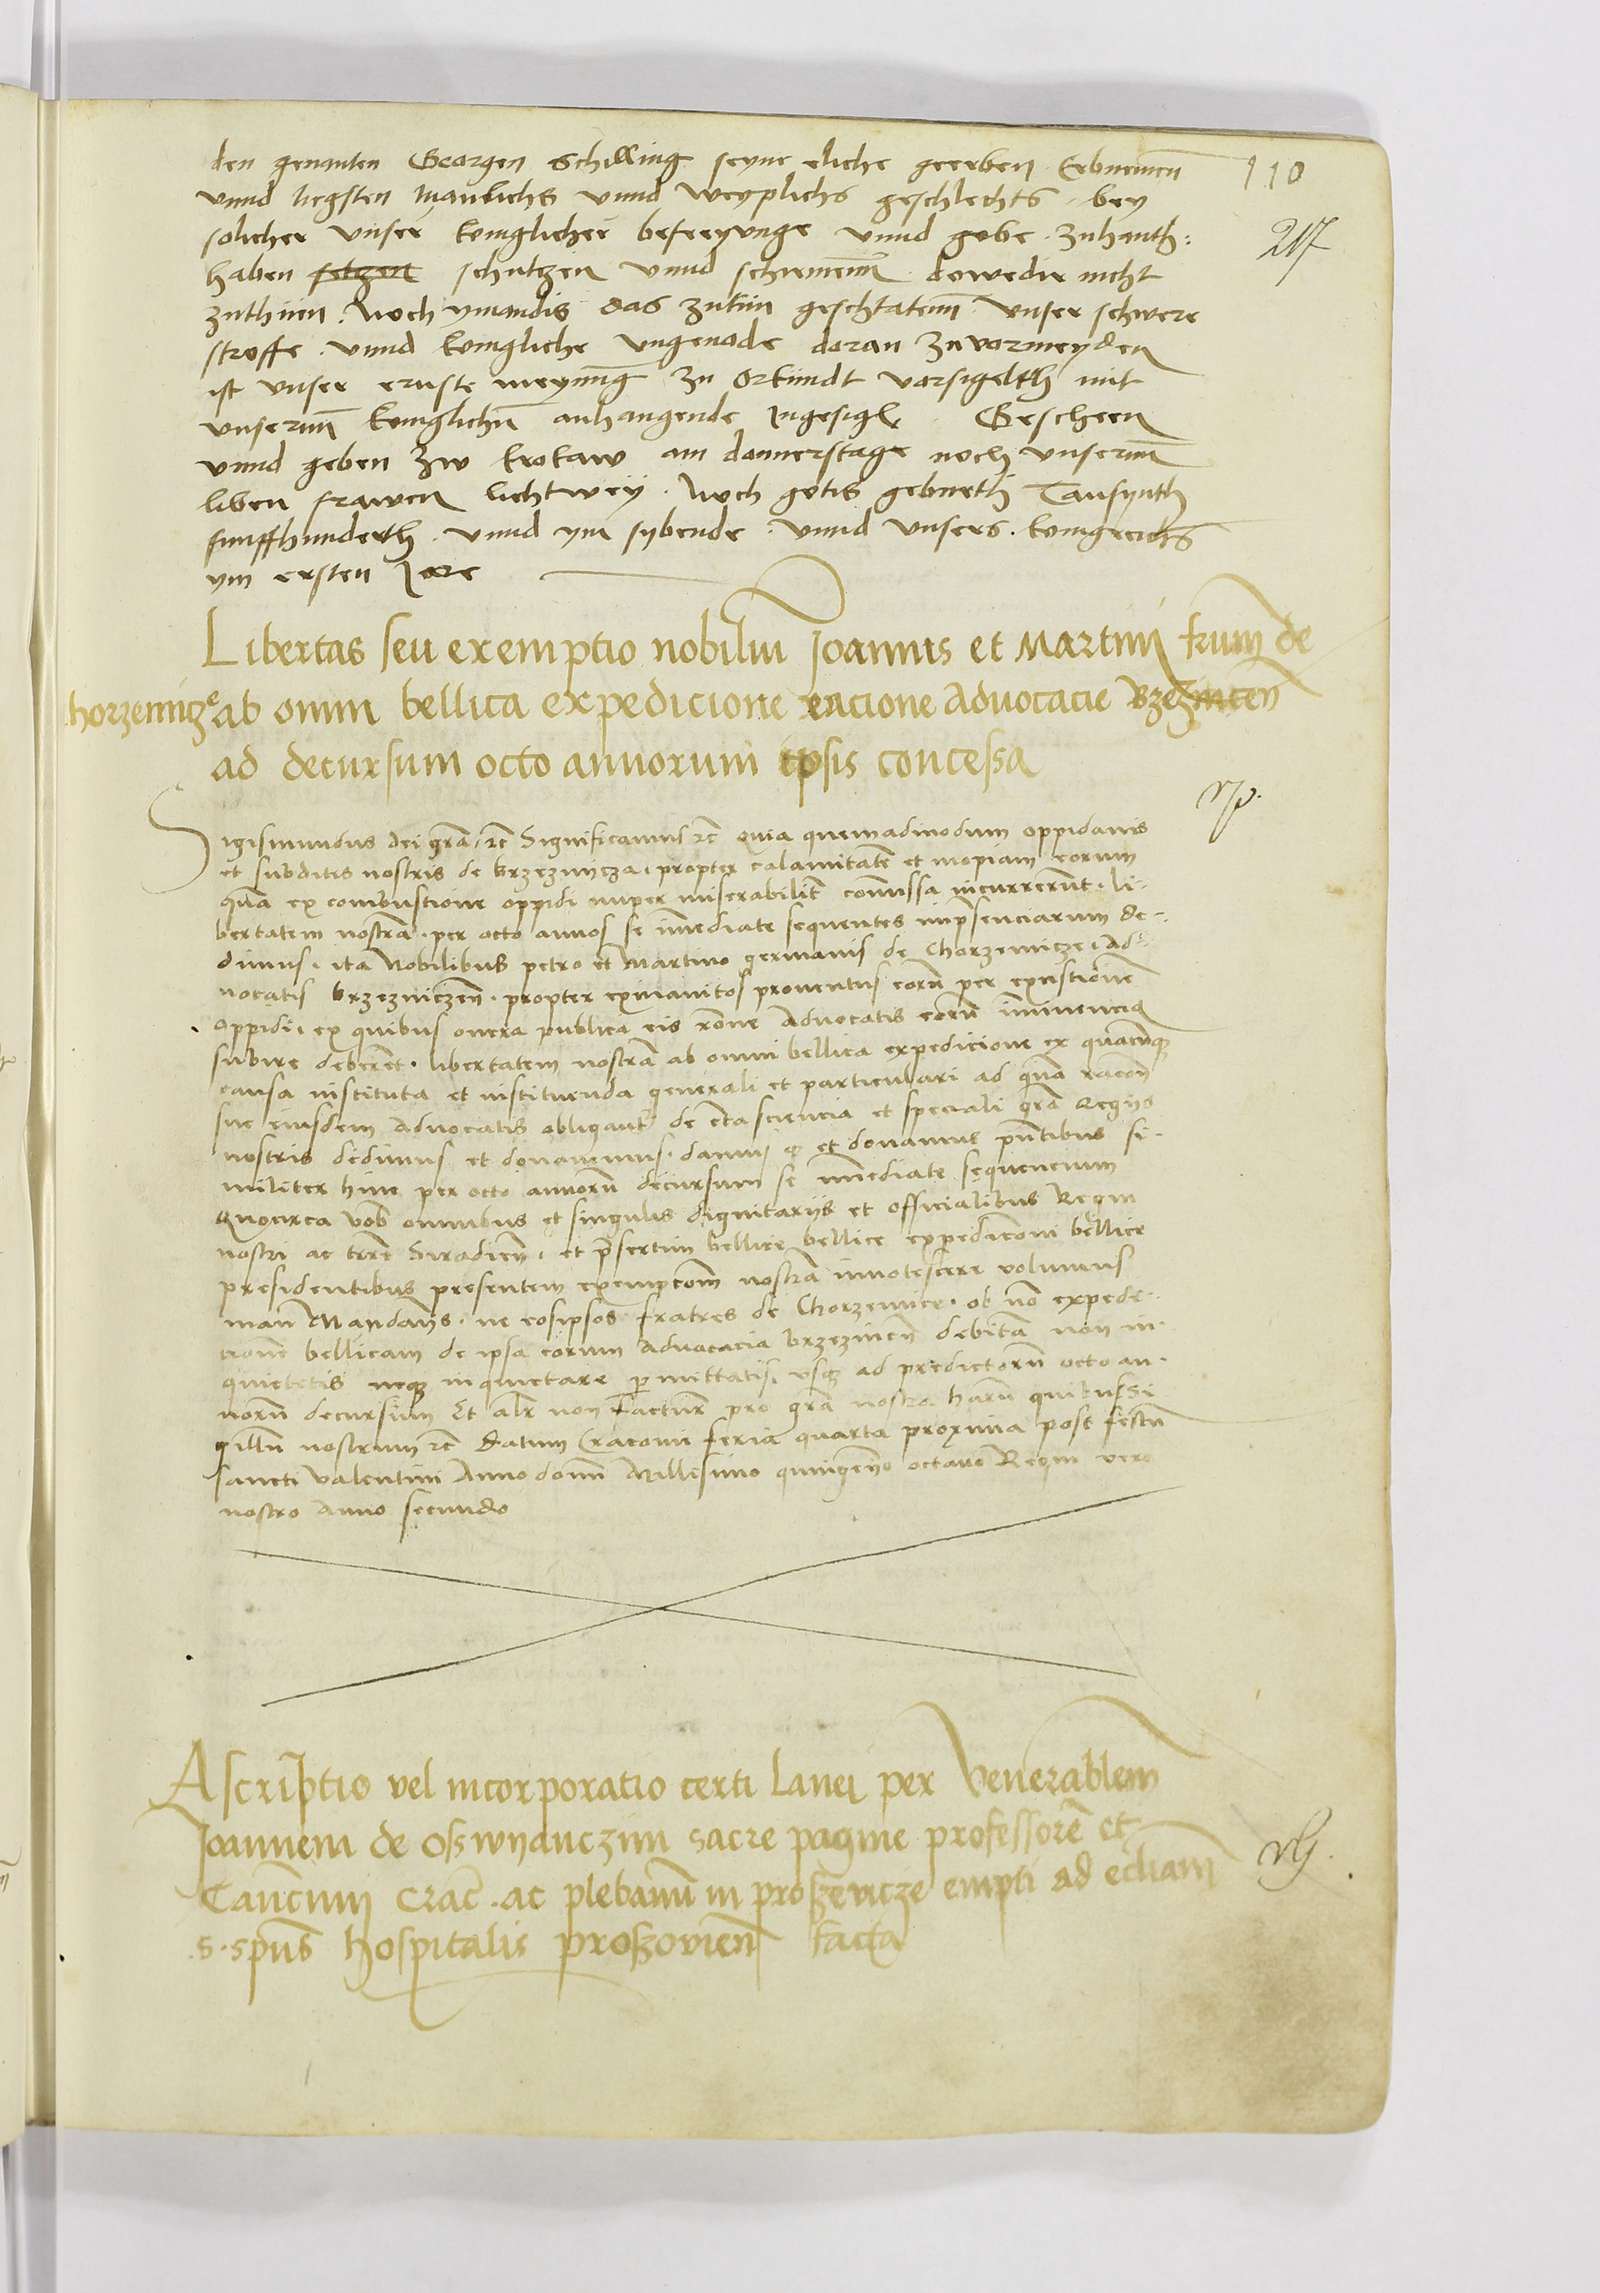 den genanten Georgen Schilling seyne eliche geerben Erbnemen
110
vnnd negsten Manlichs vnnd weyplichs geschlechts bey
solicher vnser koniglicher befreyunge vnnd gobe zuhanth:
217
haben setzen schutzen vnnd schirmenn dowedir nicht
zuthunn. Noch ymandis das zutun geschtatenn vnser schwere
stroffe. vnnd konigliche vngenode doran zuvormeyden
ist vnser ernste meynung zu Orkundt vorsigelth mit
vnserm koniglichen anhangende Ingesigl Gescheen
vnnd geben zw krokaw am donnerstage noch vnserm
liben frawen lichtwey. Noch gotis geburth Tausynth
funffhunderth. vnnd ym sybende. vnnd vnsers. konigreichs
ym ersten Jore
Libertas seu exemptio nobiliu Joannis et Martini frum de
horzemicze ab omni bellica expedicione racione Advocacie Brzeznicen
ad decursum octo annorum ipsis concessa
Sigismundus dei gra. etc Significamus etc Quia quemadmodum oppidanis
et subditis nostris de brzeznycza. propter calamitate et inopiam eorum
qua ex combustione oppidi nuper miserabilit comissa incurrerunt. li-
bertatem nostra. per octo annos se imediate sequentes impresenciarum de-
dimus. ita Nobilibus petro et Martino germanis de Chorzemicze. ad-
uocatis brzezniczen. propter exinanitos prouentus eoru per exustione
oppidi. ex quibus onera publica eis rone Advocatis eoru iminencia
subire deberet. libertatem nostra ab omni bellica expedicione ex quacunque
causa instituta et instituenda generali et particulari ad qua racon
sue eiusdem Advocatis obligant de certa sciencia et speciali gra Regys
nostris dedimus et donauimus. damusque et donamus pntibus si-
militer hinc per octo annoru decursum se imediate sequencium
Quocirca vob omnibus et singulis dignitarijs et officialibus Regni
nostri ac terre Siradien. et presertim bellice bellice expedicioni bellice
presidentibus presentem exempcom nostra innotescere volumus
man Mandans. ne eosipsos fratres de Chorzemice. ob non expede-
cione bellicam de ipsa eorum Advocacia brzeznicen debita non in-
quietetis neque inquietare permittatis. vsque ad predictoru octo an-
noru decursum Et alr non factur pro gra nostra haru quibus Si-
gillu nostrum etc Datum Cracouie feria quarta proxima post festu
sancti Valentini Anno domi Millesimo quingeno octavo Regni vero
nostro anno secundo
Ascriptio vel incorporatio certi Lanei per Venerablem
Joannem de Osswyanczim sacre pagine professore et
Canoncum Crac. ac plebanu in proszevicze empti ad ecliam
.S. spus hospitalis proszovien facta